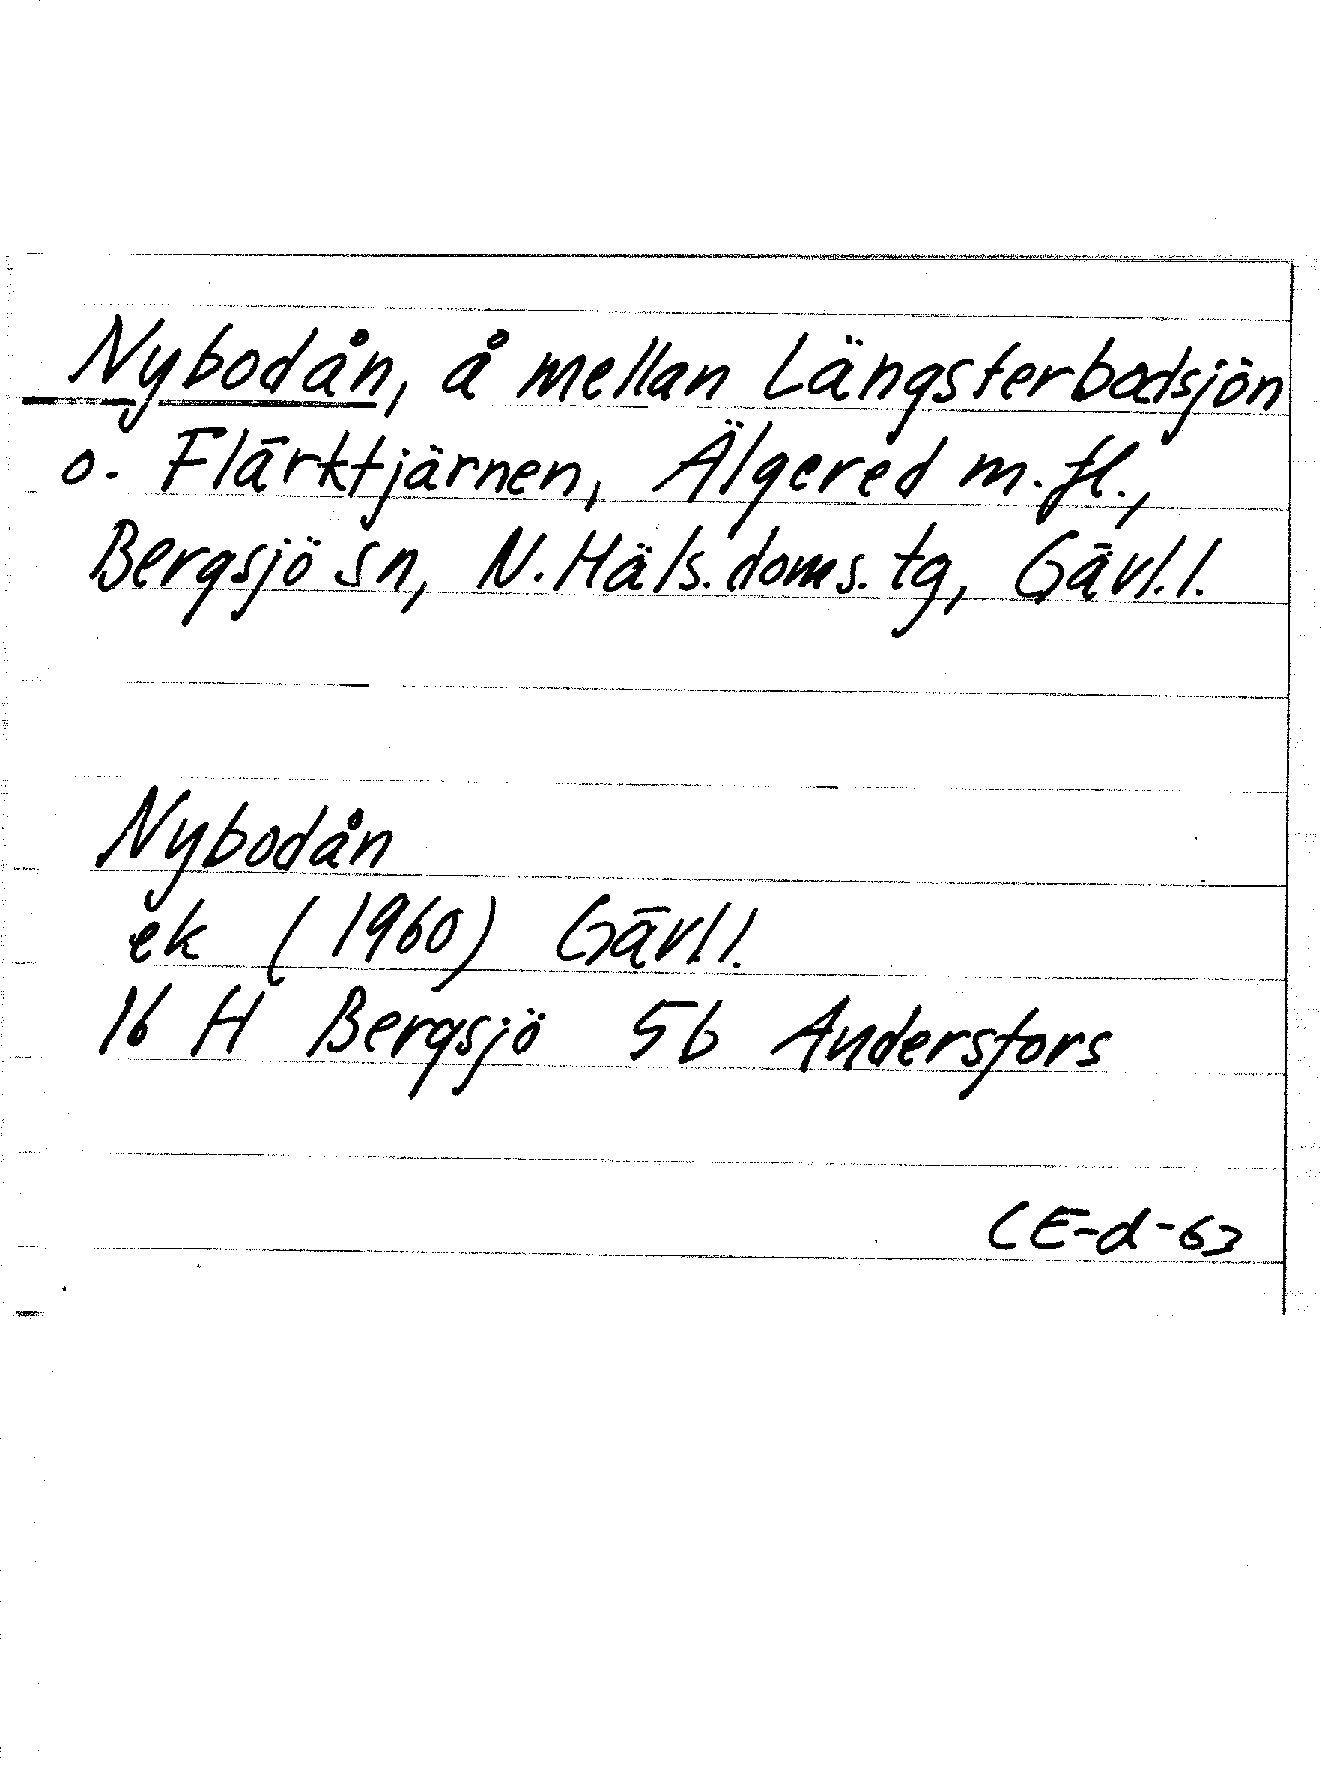 Nybodån, å mellan Längsterbodsjön
o. Flärktjärnen, Älgered m.fl.,
Bergsjö sn, N. Häls. doms. tg, Gävl. l.
Nybodån
ek (1960) Gävl. l.
16 H Bergsjö 5b Andersfors
CE-d-63